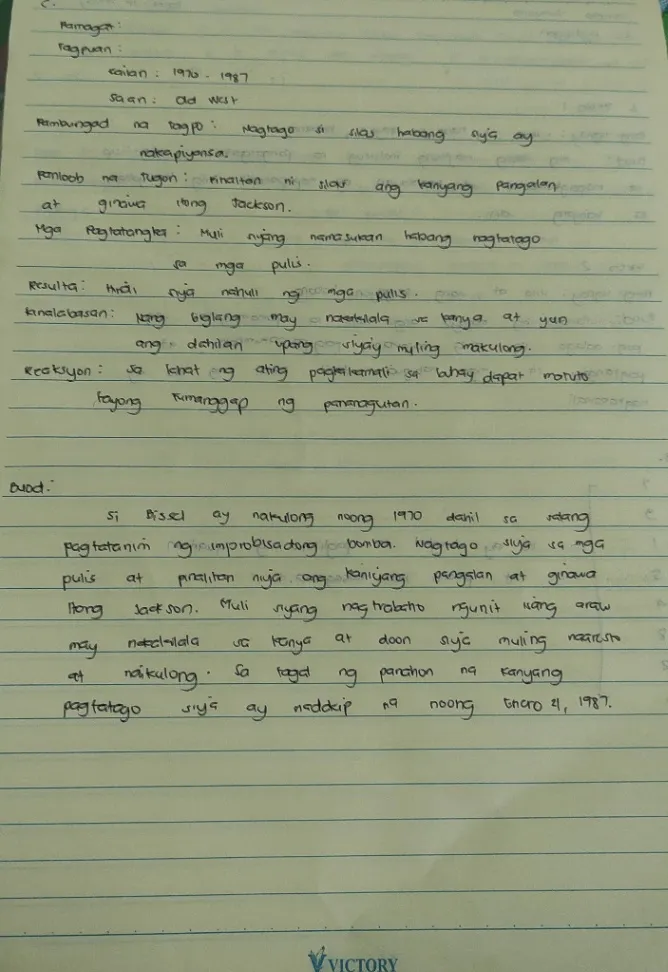 C.
Pamagat :
Tagpuan :
Kailan : 1970 - 1987
Saan : Old West
Pambungad na Tagpo : Nagtago si Silas habang siya ay
nakapiyansa.
Panloob na Tugon : Pinalitan ni Silas ang kanyang pangalan
at ginawa itong Jackson.
Mga Pagtatangka : Muli niyang namasukan habang nagtatago
sa mga pulis.
Resulta : Hindi siya nahuli ng mga pulis.
Kinalabasan : Nang biglang may nakakilala sa kanya at yun
ang dahilan upang siya'y muling makulong.
Reaksyon : Sa lahat ng ating pagkakamali sa buhay dapat matuto
tayong tumanggap ng pananagutan.
Buod :
Si Bissel ay nakulong noong 1970 dahil sa salang
pagtatanim ng improbisadong bomba. Nagtago siya sa mga
pulis at pinalitan niya ang kaniyang pangalan at ginawa
itong Jackson. Muli siyang nagtrabaho ngunit isang araw
may nakakilala sa kanya at doon siya muling naaresto
at naikulong. Sa tagal ng panahon na kanyang
pagtatago siya ay nadakip na noong Enero 21, 1987.
VICTORY